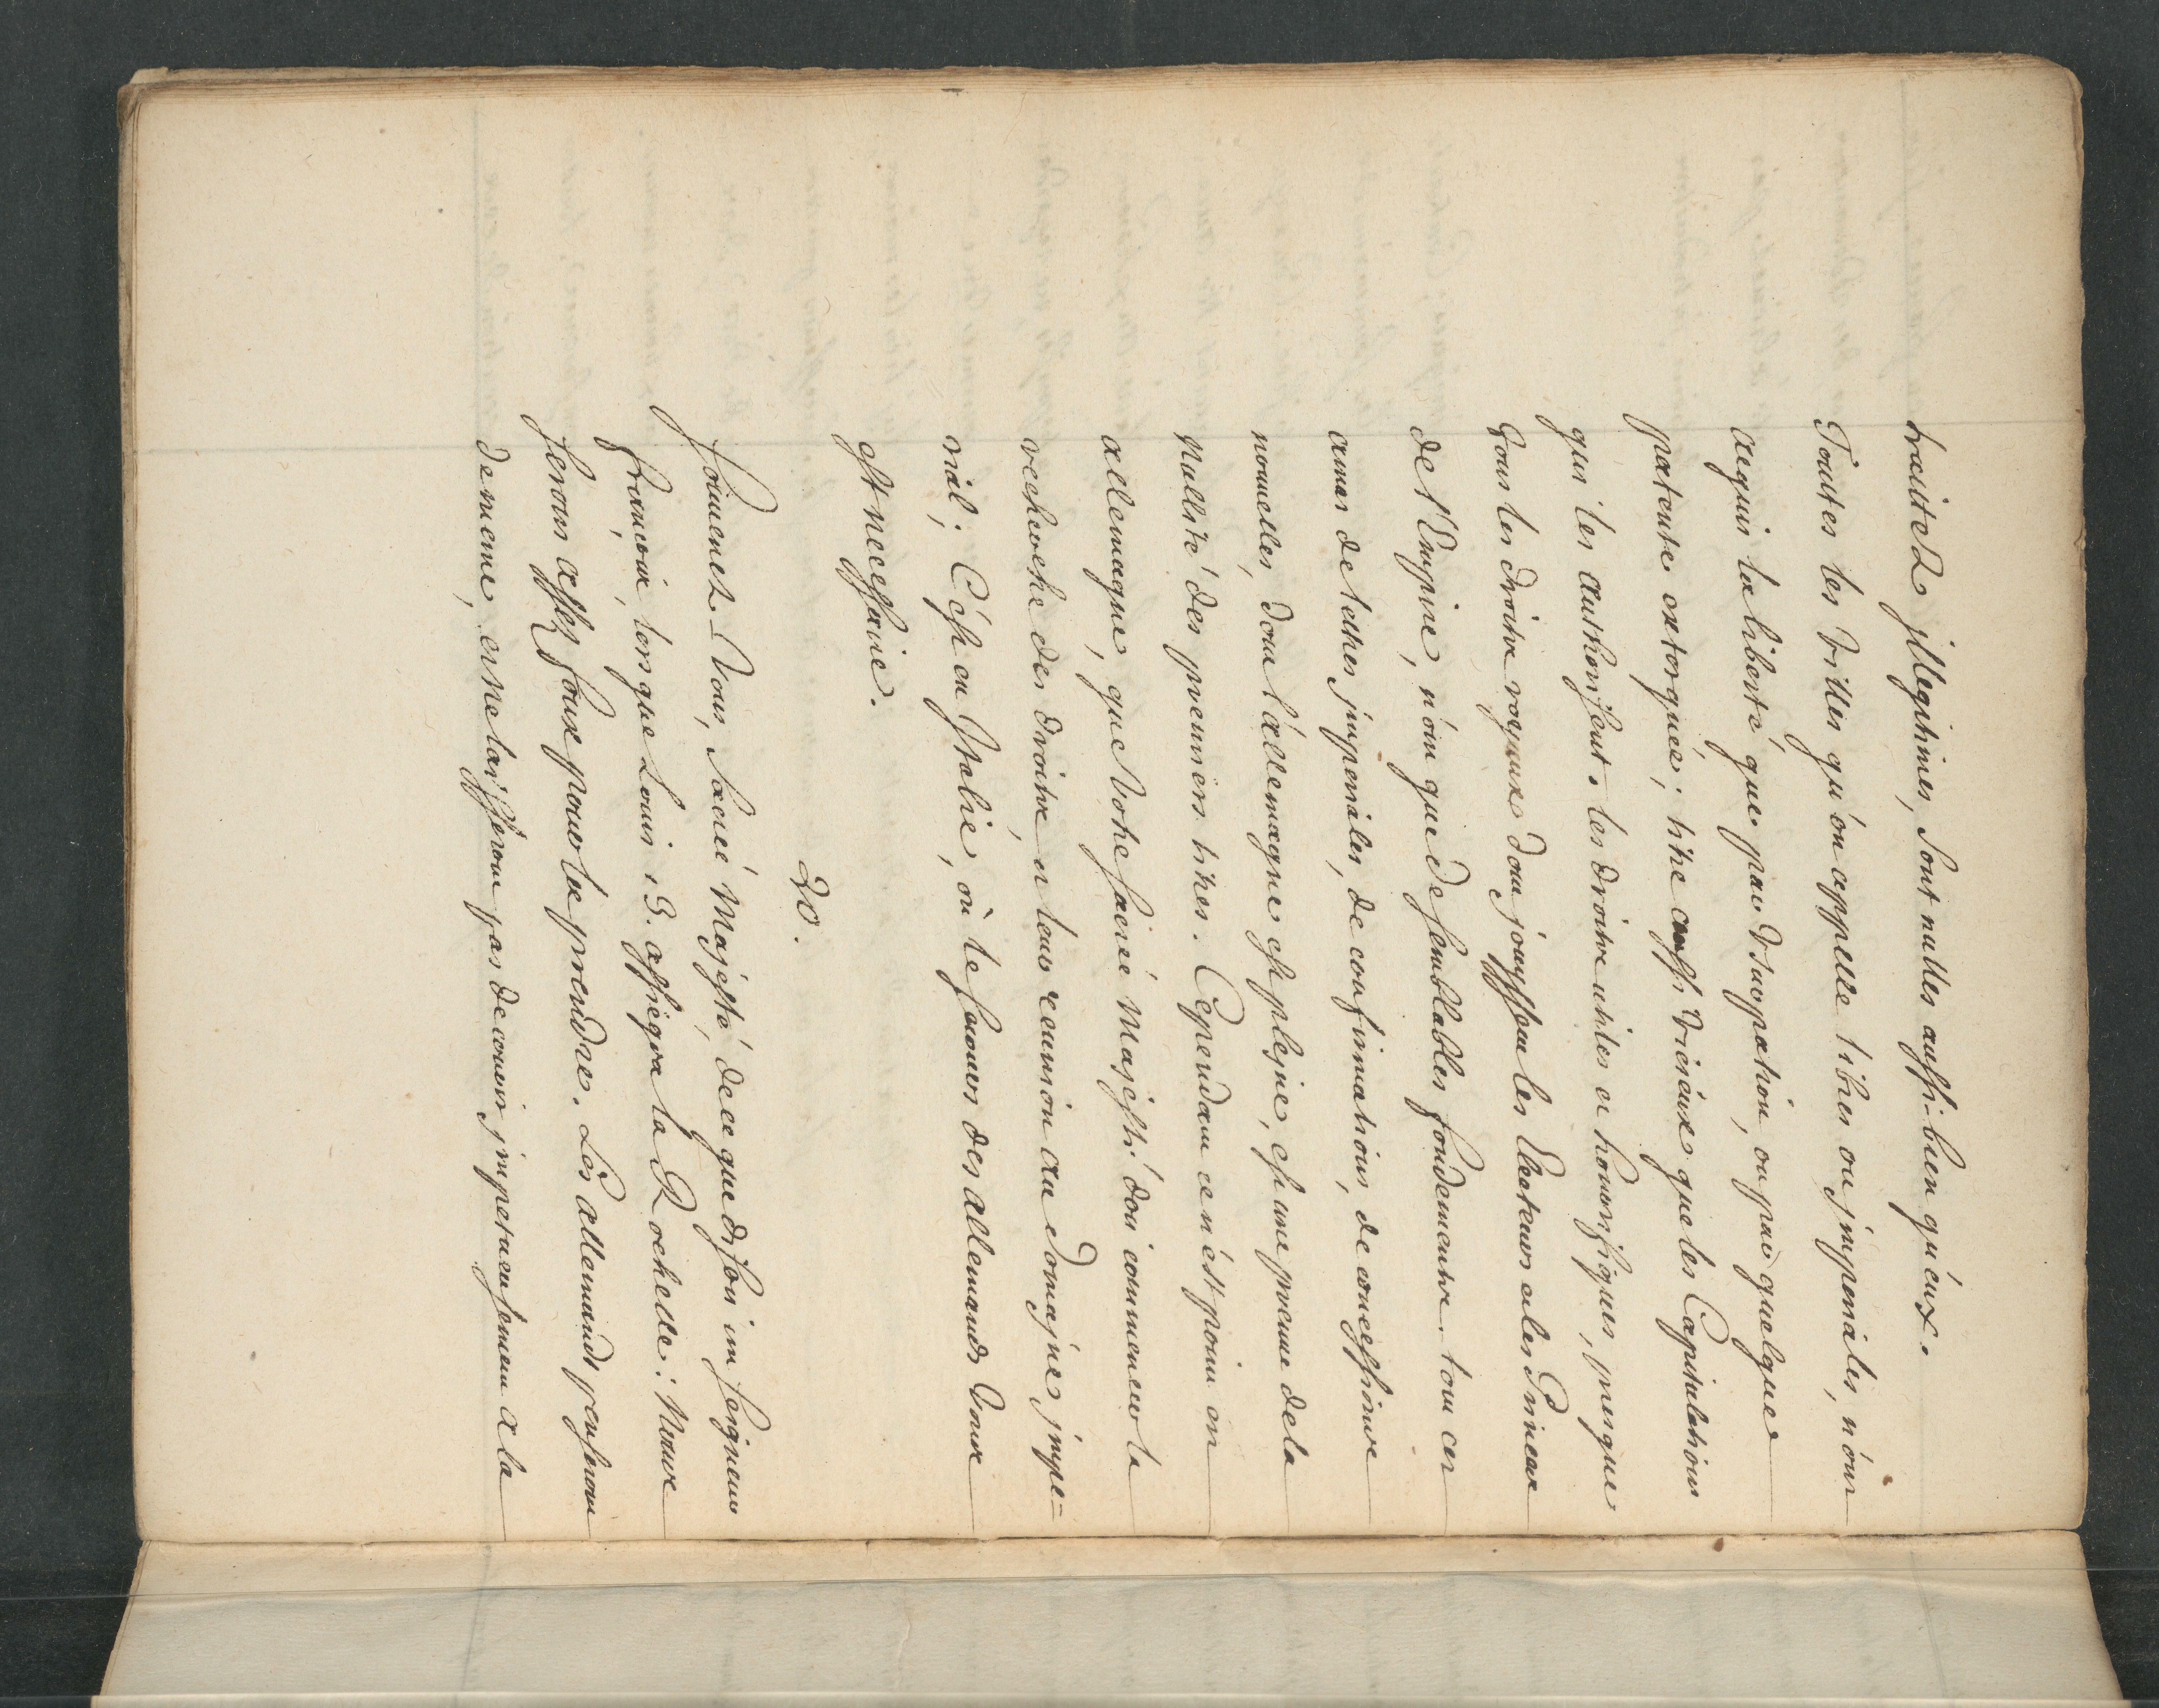 traittez jllegitimes, Sont nulles aussi-bien qu'eux.
Toutes les Villes qu'on appelle libres ou jmperiales, n'ont
acquis la liberté, que par Usurpation, ou par quelque
patente extorquée; titre aussi Vicieux que les Capitulations
qui les authorisent. les droits utiles et honorifiques, presque
Tous les droits royaux dont jouyssent les Electeurs et les Princes
de l'Empire, n'ont que de semblables fondements. tout cet
amas de lettres jmperiales, de confirmations, de concessions
nouvelles, dont l'allemagne est pleine, est une preuve de la
Nullité des premiers titres. Cependant ce n'est point en
allemagne, que Votre sacrée Majesté doit commencer la
recherche des droits, et leur reunion au domajne jmpe=
rial; C'est en Jtalie, où le secours des allemands Vous
est necessaire.
20.
souvenez-Vous, sacrée Majesté, de ce que disoit un seigneur
françois, lors que Louis 13. assiegea la Rochelle: Nous
serons assez foux pour la prendre. Les allemands penseront
de meme, et ne laisseront pas de courir jmpetueusement a la